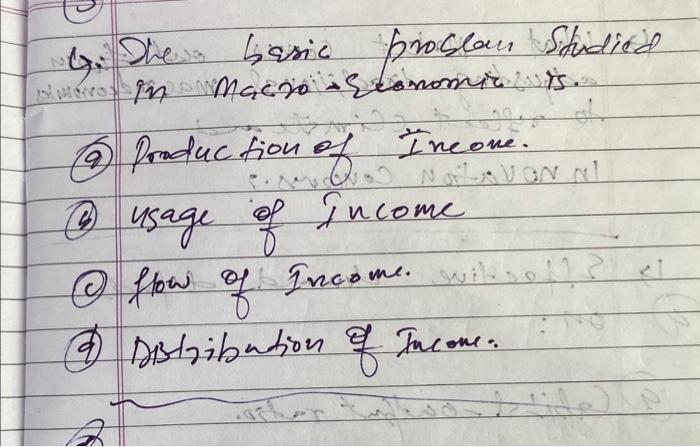 The basic problem Studied
in Macro-Economic is.
(a) Production of Income.
(b) usage of Income
(c) flow of Income.
(d) Distribution of Income.